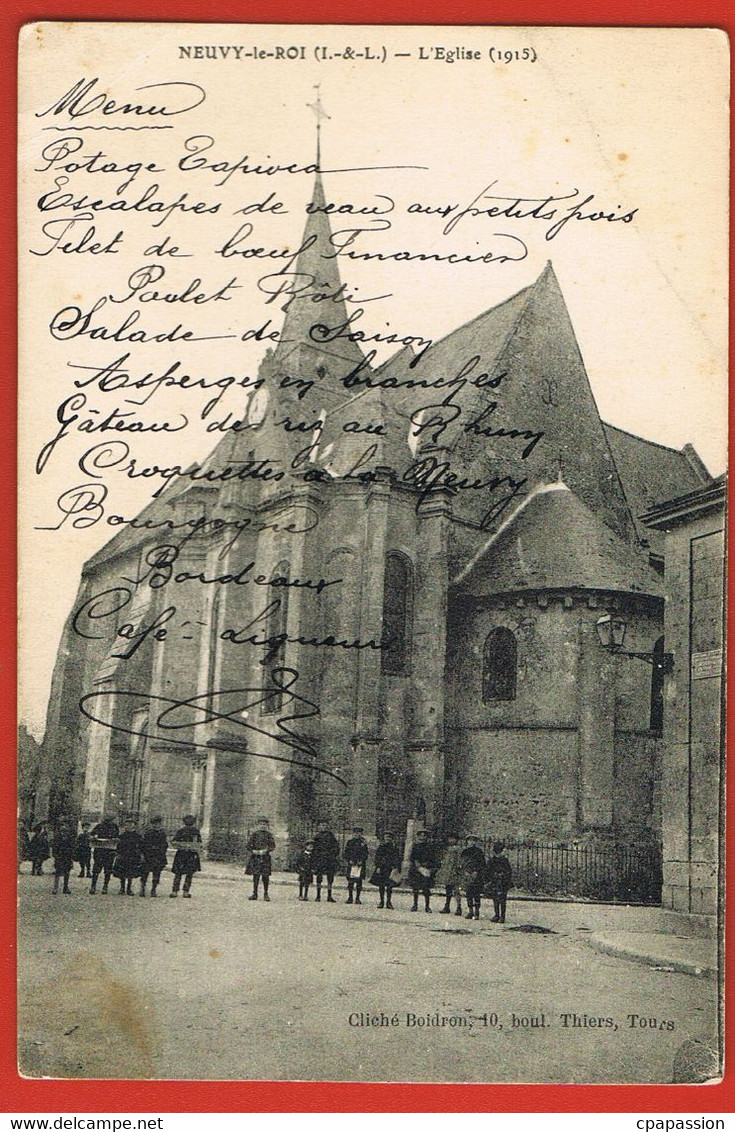 NEUVY-le-ROI (I.-&-L.) — L'Eglise (1915)
Menu
Potage Tapioca
Escalapes de veau aux petits pois
Filet de bœuf Financier
Poulet Rôti
Salade de Saison
Asperges en branches
Gâteau de riz au Rhum
Croquettes à la Neuvy
Bourgogne
Bordeaux
Café - Liqueurs
Cliché Boidron, 10, boul. Thiers, Tours
cpapassion